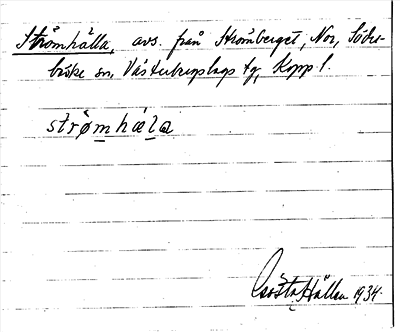 Strömhälla, avs. från Strömberget, Nor, Söder-
bärke sn, Västerbergslags tg, Kopp l.
strømhæla
Gösta Hällen 1934.